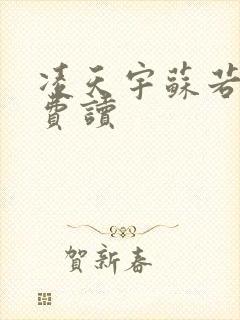 凌天宇蘇若
費讀
賀新春